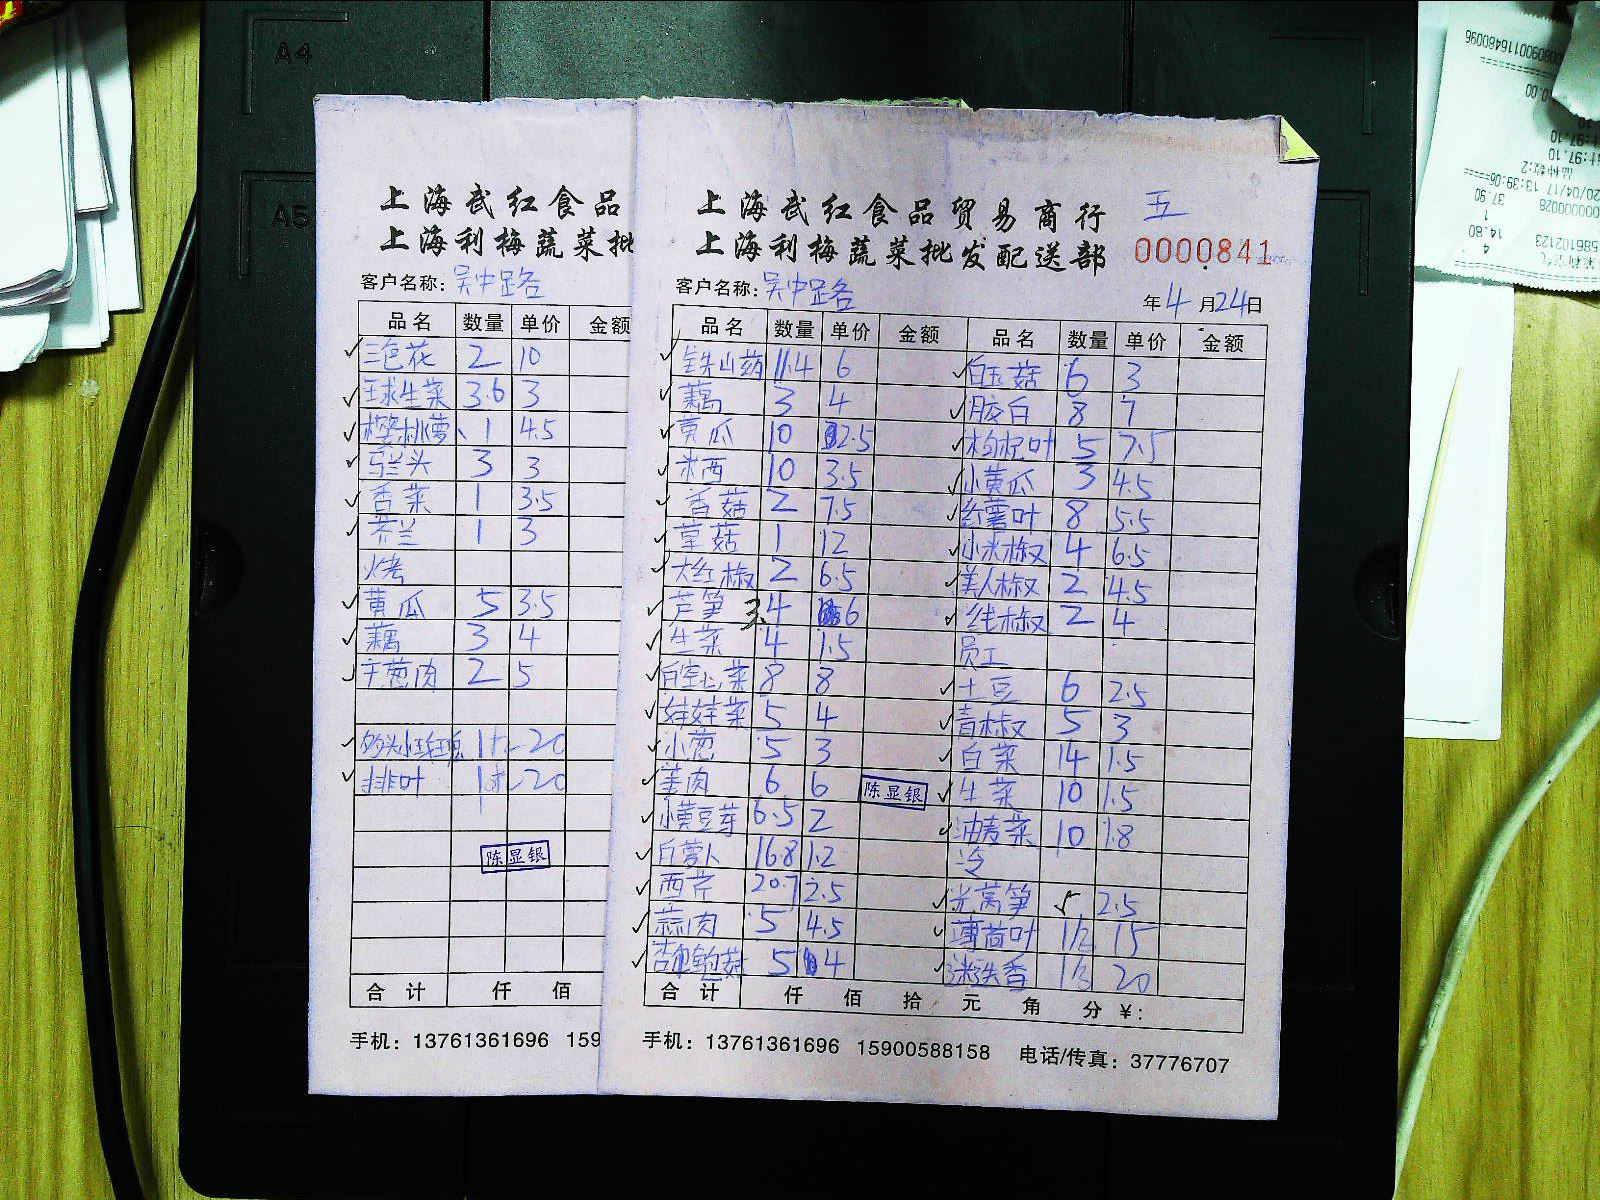 A4
A5
上海武红食品
上海利梅蔬菜批
客户名称：吴中路
品名 数量 单价 金额
三色花 2 10
球生菜 3.6 3
樱桃萝、 1 4.5
马兰头 3 3
香菜 1 3.5
芥兰 1 3
烤
黄瓜 5 3.5
藕 3 4
葱肉 2 5
20
排叶 20
陈显银
合计 仟 佰
手机：13761361696 159
上海武红食品贸易商行 五
上海利梅蔬菜批发配送部 0000841
客户名称：吴中路 年4月24日
品名 数量 单价 金额 品名 数量 单价 金额
铁山药 11.4 6 白玉菇 6 3
藕 3 4 胶白 8 7
黄瓜 10 2.5 枸杞叶 5 7.5
米西 10 3.5 小黄瓜 3 4.5
香菇 2 7.5 红薯叶 8 5.5
草菇 1 12 小米椒 4 6.5
大红椒 2 6.5 美人椒 2 4.5
芦笋 4 6 线椒 2 4
生菜 4 1.5 员工
白空心菜 8 8 土豆 6 2.5
娃娃菜 5 4 青椒 5 3
小葱 5 3 白菜 14 1.5
姜肉 6 6 陈显银 生菜 10 1.5
小黄豆芽 6.5 2 油麦菜 10 1.8
白萝卜 16.8 1.2 冷
西芹 20.7 2.5 光莴笋 5 2.5
蒜肉 5 4.5 薄荷叶 1/2 15
杏鲍菇 5 4 迷迭香 1/3 20
合计 仟 佰 拾 元 角 分 ¥：
手机：13761361696 15900588158 电话/传真：37776707